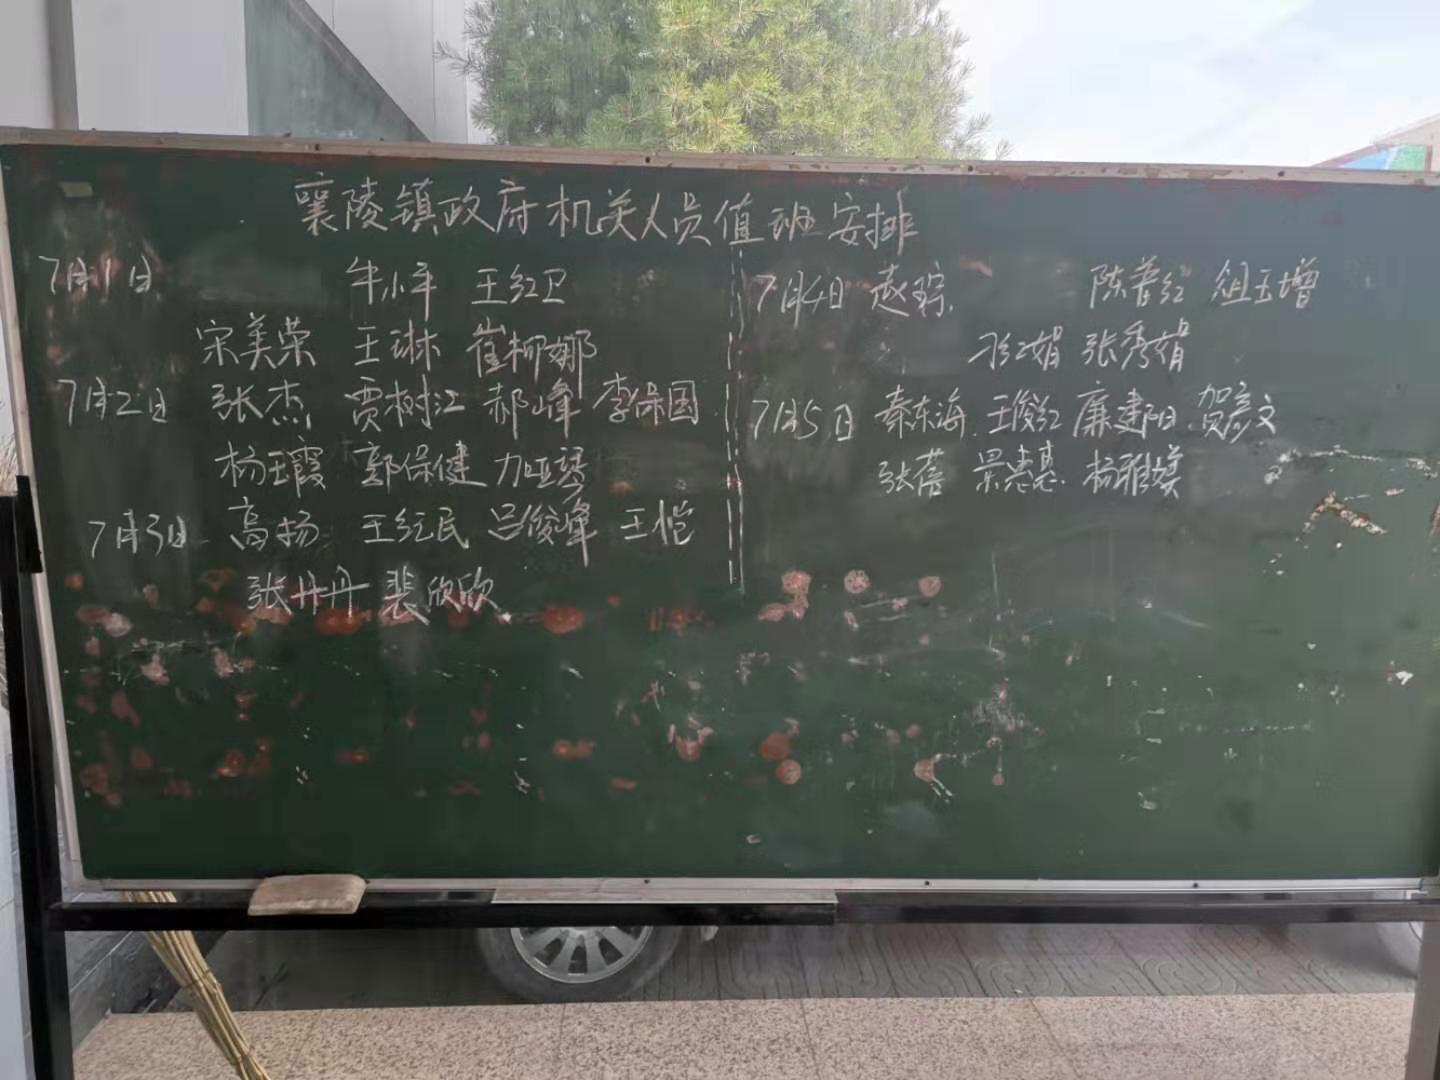 襄陵镇政府机关人员值班安排
7月1日 牛小平 王红卫
宋美荣 王琳 崔柳娜
7月2日 张杰 贾树江 郝峰 李保国
杨玉霞 郭保健 力亚琴
7月3日 高扬 王红民 吕俊峰 王恺
张丹丹 裴欣欣
7月4日 赵琮 陈普红 祖玉增
张秀娟
7月5日 秦东海 王俊红 廉建阳 贺彦文
张蓓 景惠慧 杨雅媖